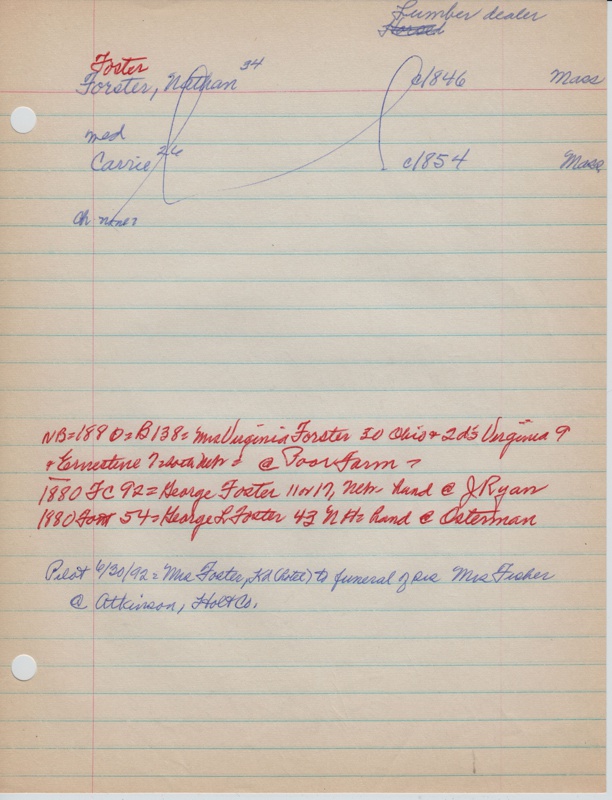 Lumber dealer
Foster
Forster, Nathan 34 c1846 Mass
med
Carrie 26 c1854 Mass
ch none?
NB=1880=B138= Mrs Virginia Forster 30 Ohio + 2 ds Virginia 9
+ Ernestine 7 both Neb = @ Poor Farm =
1880 FC 92= George Foster 11 or 17, Neb= hand @ J Ryan
1880 54= George L Foster 43 NH= hand @ Osterman
Pilot 6/30/92= Mrs Foster, to funeral of sis Mrs Fisher
@ Atkinson, Holt Co.